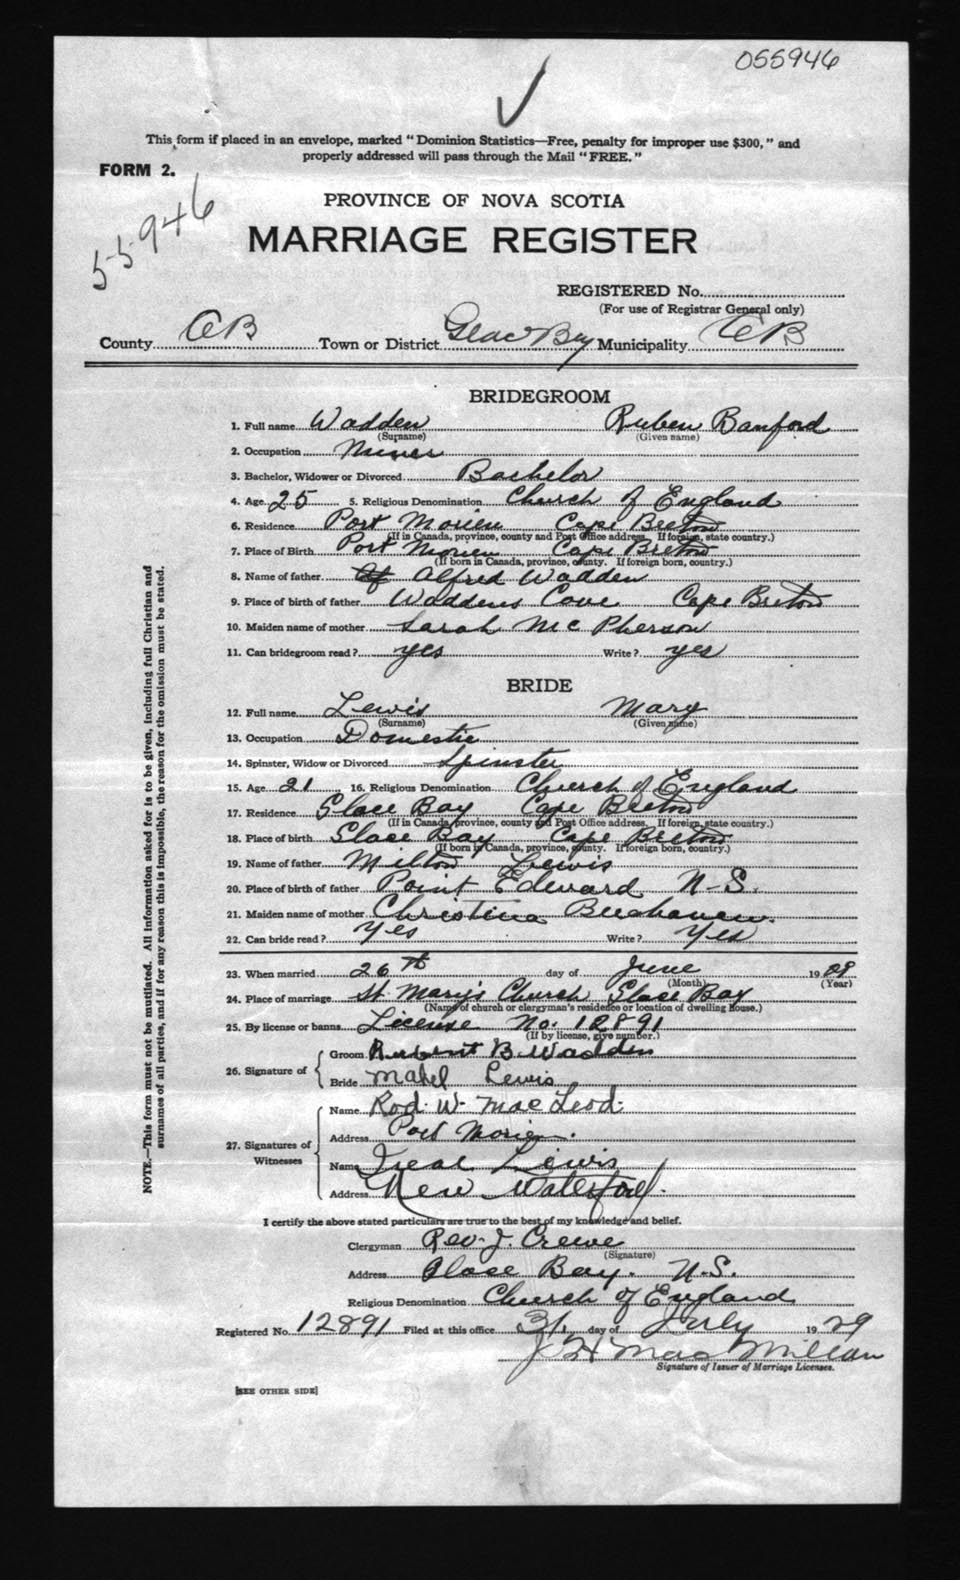 055946
This form if placed in an envelope, marked "Dominion Statistics—Free, penalty for improper use $300," and
properly addressed will pass through the Mail "FREE."
FORM 2.
55946
PROVINCE OF NOVA SCOTIA
MARRIAGE REGISTER
REGISTERED No.
(For use of Registrar General only)
County CB Town or District Glace Bay Municipality CB
BRIDEGROOM
1. Full name Wadden Ruben Banford
(Surname) (Given name)
2. Occupation Miner
3. Bachelor, Widower or Divorced Bachelor
4. Age 25 5. Religious Denomination Church of England
6. Residence Port Morien Cape Breton
(If in Canada, province, county and Post Office address. If foreign, state country.)
7. Place of Birth Port Morien Cape Breton
(If born in Canada, province, county. If foreign born, country.)
8. Name of father Alfred Wadden
9. Place of birth of father Waddens Cove Cape Breton
10. Maiden name of mother Sarah McPherson
11. Can bridegroom read? yes Write? yes
BRIDE
12. Full name Lewis Mary
(Surname) (Given name)
13. Occupation Domestic
14. Spinster, Widow or Divorced Spinster
15. Age 21 16. Religious Denomination Church of England
17. Residence Glace Bay Cape Breton
(If in Canada, province, county and Post Office address. If foreign, state country.)
18. Place of birth Glace Bay Cape Breton
(If born in Canada, province, county. If foreign born, country.)
19. Name of father Milton Lewis
20. Place of birth of father Point Edward N-S.
21. Maiden name of mother Christina Buchanan.
22. Can bride read? Yes Write? Yes
23. When married 26th day of June 19
(Month) (Year)
24. Place of marriage St Mary's Church Glace Bay
(Name of church or clergyman's residence or location of dwelling house.)
25. By license or banns License No. 12891
(If by license, give number.)
26. Signature of
Groom Rubent B Wadden
Bride Mabel Lewis
27. Signatures of Witnesses
Name Rod. W. MacLeod.
Address Port Morien.
Name Lewis
Address New Waterford.
I certify the above stated particulars are true to the best of my knowledge and belief.
Clergyman Rev. J. Crewe
(Signature)
Address Glace Bay. N.S.
Religious Denomination Church of England
Registered No. 12891 Filed at this office 31 day of July 1929
J H MacMillan
Signature of Issuer of Marriage Licenses.
[SEE OTHER SIDE]
NOTE.—This form must not be mutilated. All information asked for is to be given, including full Christian and
surnames of all parties, and if for any reason this is impossible, the reason for the omission must be stated.